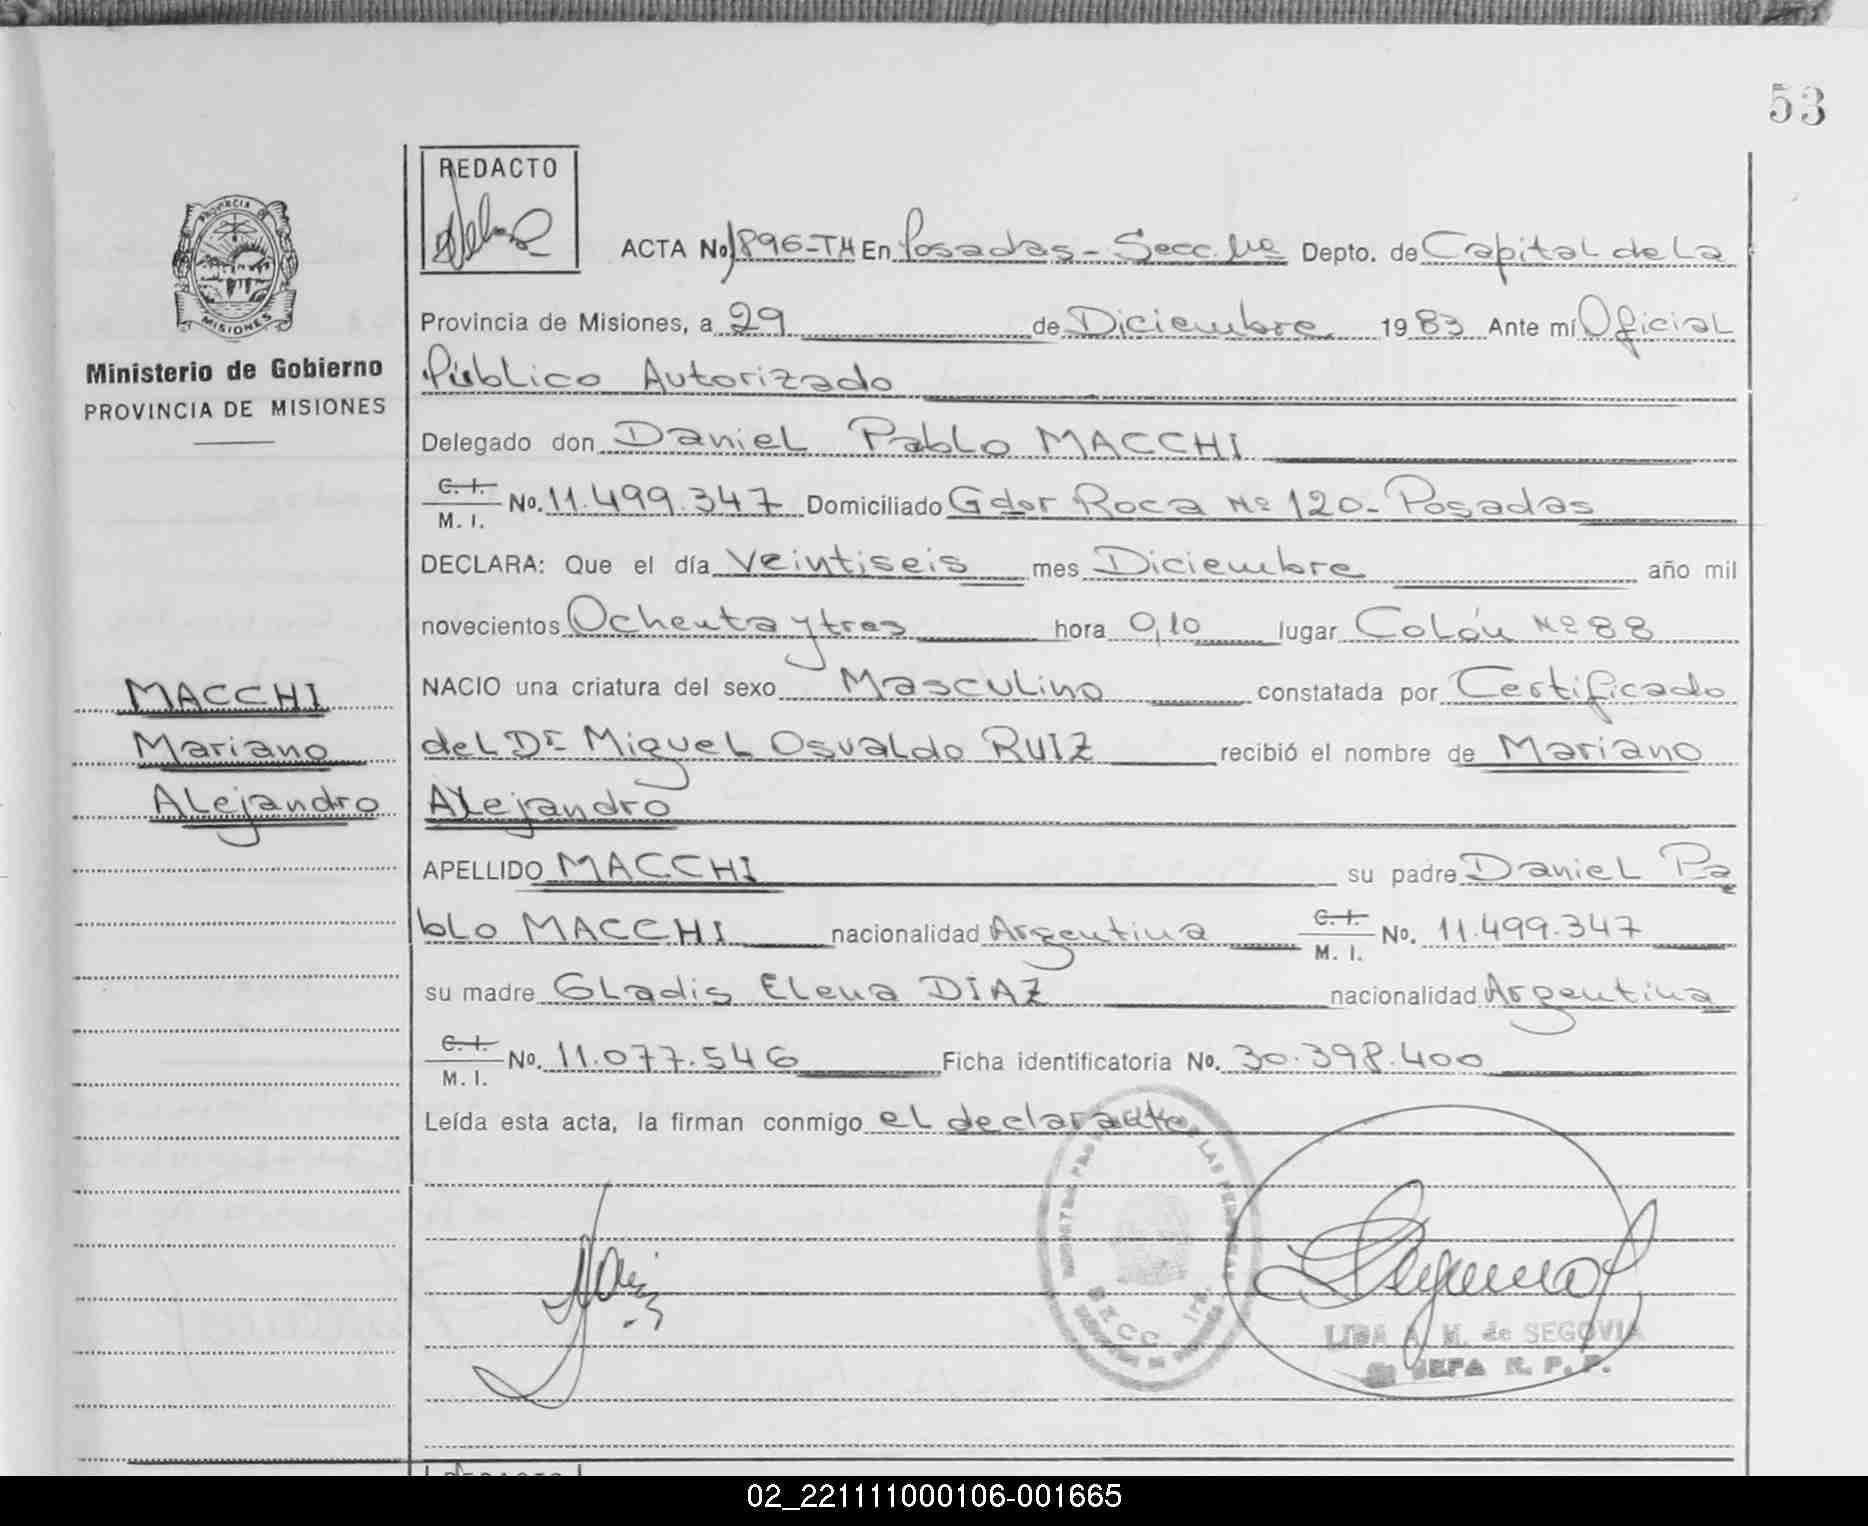 53
REDACTO
PROVINCIA DE
MISIONES
Ministerio de Gobierno
PROVINCIA DE MISIONES
MACCHI
Mariano
Alejandro
ACTA No 1896-TH En Posadas - Secc. 1ra Depto. de Capital de La
Provincia de Misiones, a 29 de Diciembre 1983 Ante mí Oficial
Público Autorizado
Delegado don Daniel Pablo MACCHI
C. I. M. I. No. 11.499.347 Domiciliado Gdor Roca Nº 120 - Posadas
DECLARA: Que el día Veintiseis mes Diciembre año mil
novecientos Ochenta y tres hora 0,10 lugar Colón Nº 88
NACIO una criatura del sexo Masculino constatada por Certificado
del Dr Miguel Osvaldo RUIZ recibió el nombre de Mariano
Alejandro
APELLIDO MACCHI su padre Daniel Pa
blo MACCHI nacionalidad Argentina C. I. M. I. No. 11.499.347
su madre Gladis Elena DIAZ nacionalidad Argentina
C. I. M. I. No. 11.077.546 Ficha identificatoria No. 30.398.400
Leída esta acta, la firman conmigo el declarante
SECC. 1ra.
LIDA A. M. de SEGOVIA
JEFA R. P. P.
REDACTO
02_221111000106-001665